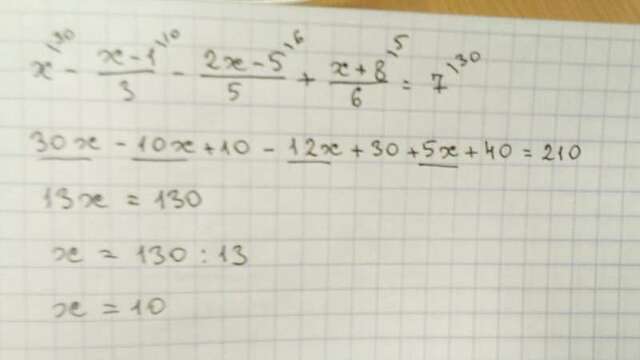 x^{\30} - \frac{x-1^{\10}}{3} - \frac{2x-5^{\6}}{5} + \frac{x+8^{\5}}{6} = 7^{\30}
30x - 10x + 10 - 12x + 30 + 5x + 40 = 210
13x = 130
x = 130 : 13
x = 10